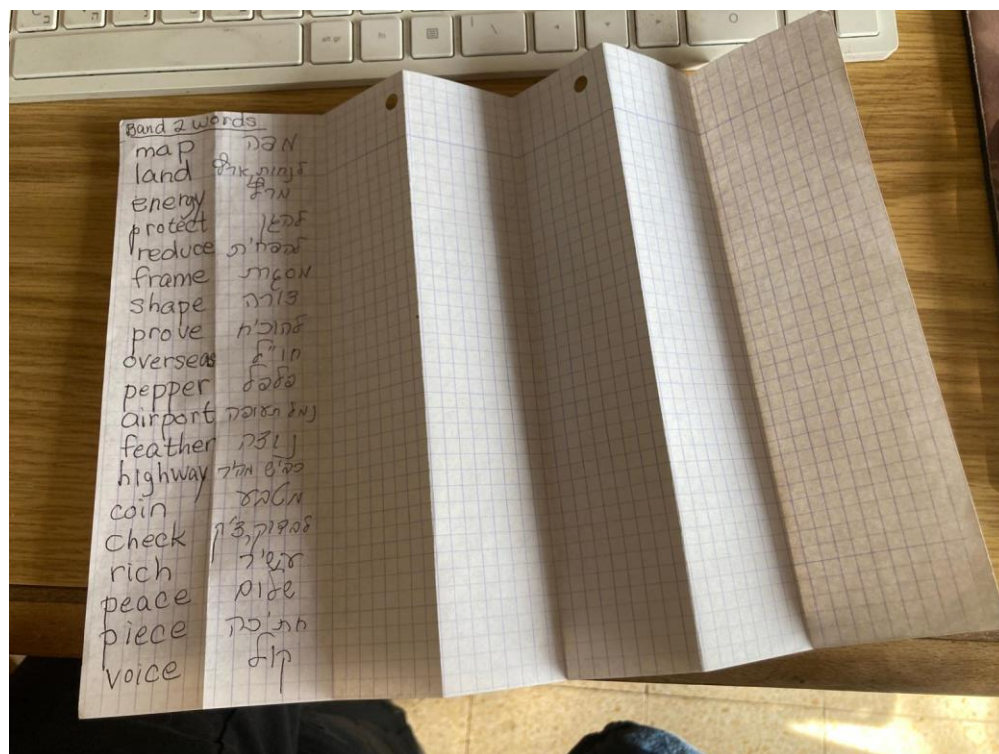 Band 2 words
map מפה
land לנחות, ארץ
energy מרץ
protect להגן
reduce להפחית
frame מסגרת
shape צורה
prove להוכיח
overseas חו"ל
pepper פלפל
airport נמל תעופה
feather נוצה
highway כביש מהיר
coin מטבע
check לבדוק, צ'ק
rich עשיר
peace שלום
piece חתיכה
voice קול